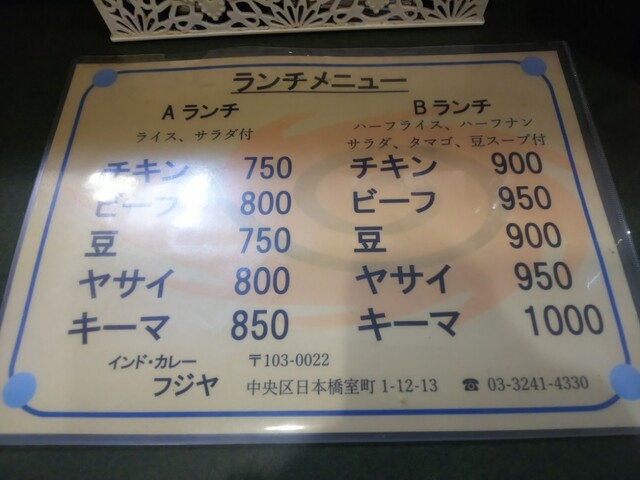 ランチメニュー
Aランチ
ライス、サラダ付
チキン 750
ビーフ 800
豆 750
ヤサイ 800
キーマ 850
Bランチ
ハーフライス、ハーフナン
サラダ、タマゴ、豆スープ付
チキン 900
ビーフ 950
豆 900
ヤサイ 950
キーマ 1000
インド・カレー
フジヤ
〒103-0022
中央区日本橋室町1-12-13 ☎ 03-3241-4330